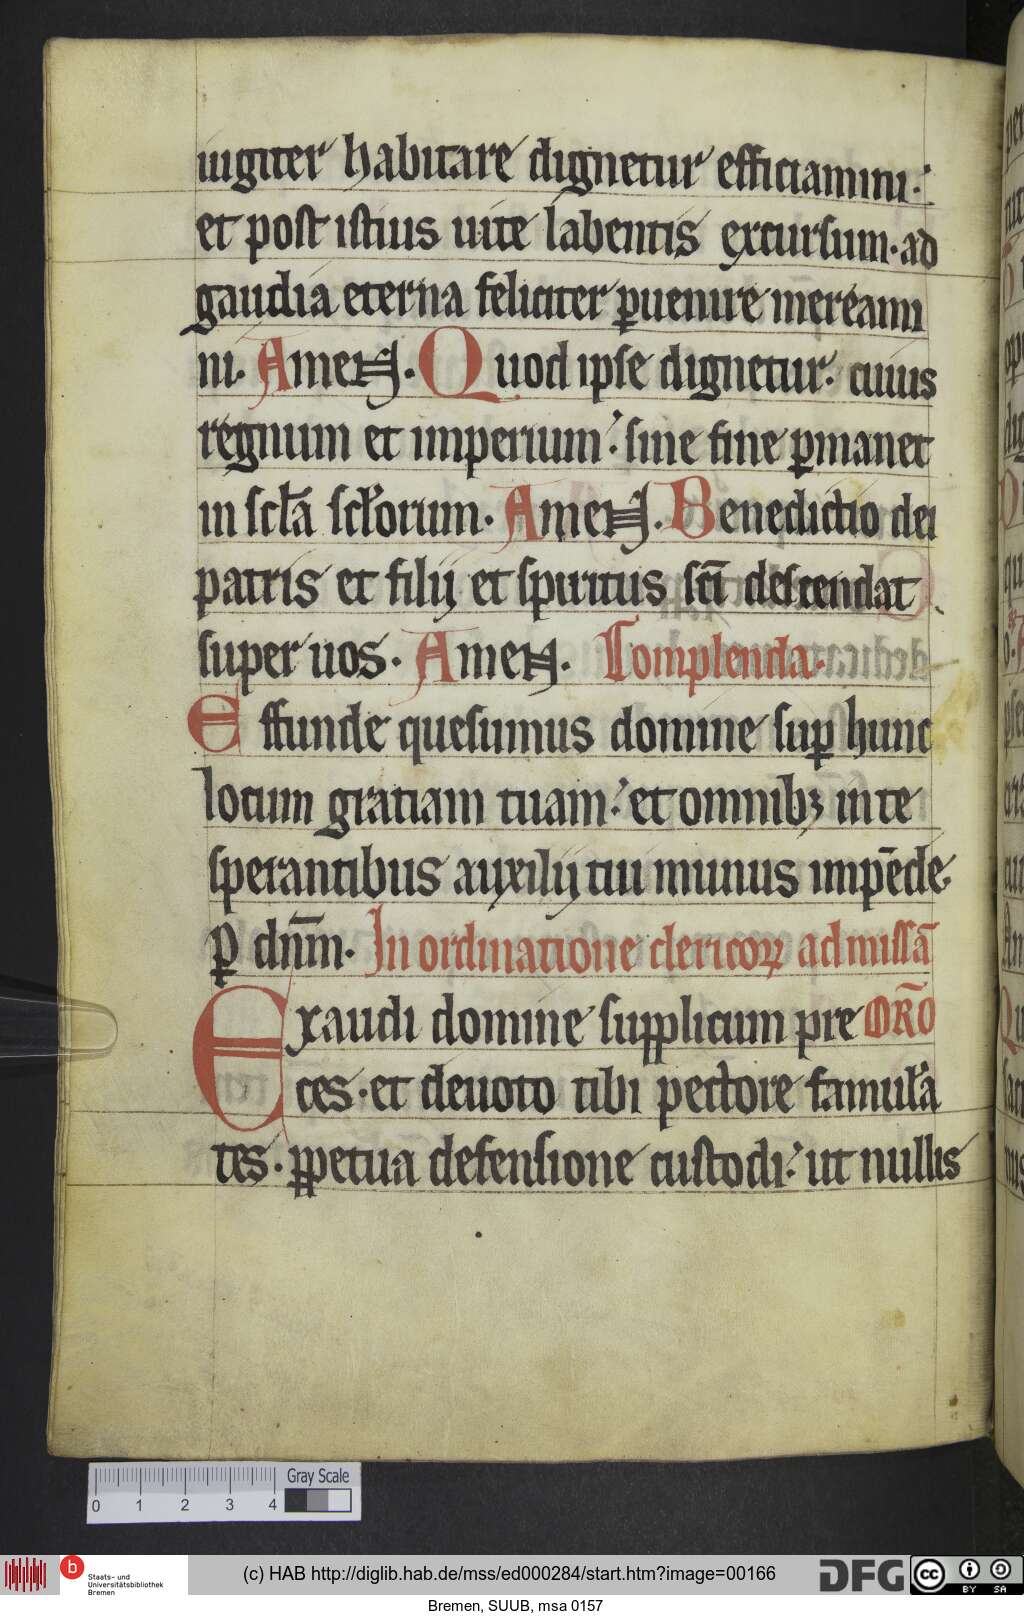 iugiter habitare dignetur efficiamini.
et post istius uite labentis excursum. ad
gaudia eterna feliciter p̱uenire mereami
ni. Amen. Quod ipse dignetur. cuius
regnum et imperium. sine fine p̱manet
in scl̄a scl̄orum. Amen. Benedictio dei
patris et filij et spiritus sc̄i descendat
super uos. Amen. Complenda.
Effunde quesumus domine sup̱ hunc
locum gratiam tuam. et omnibꝫ in te
sperantibus auxilij tui munus impēde.
ꝑ dn̄m. In ordinatione clericoꝝ ad missā
Exaudi domine supplicum pre Or̄o
ces. et deuoto tibi pectore famula
tes. ꝑpetua defensione custodi. ut nullis
0 1 2 3 4
Gray Scale
b
Staats- und
Universitätsbibliothek
Bremen
(c) HAB http://diglib.hab.de/mss/ed000284/start.htm?image=00166
DFG
cc
BY SA
Bremen, SUUB, msa 0157